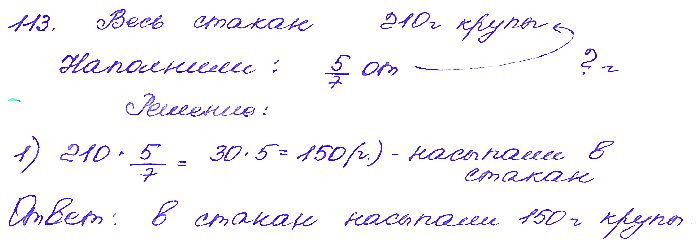 113. Весь стакан 210 г крупы
Наполнили: 5/7 от ? г
Решение:
1) 210 · 5/7 = 30 · 5 = 150 (г.) - насыпали в
стакан
Ответ: в стакан насыпали 150 г крупы.